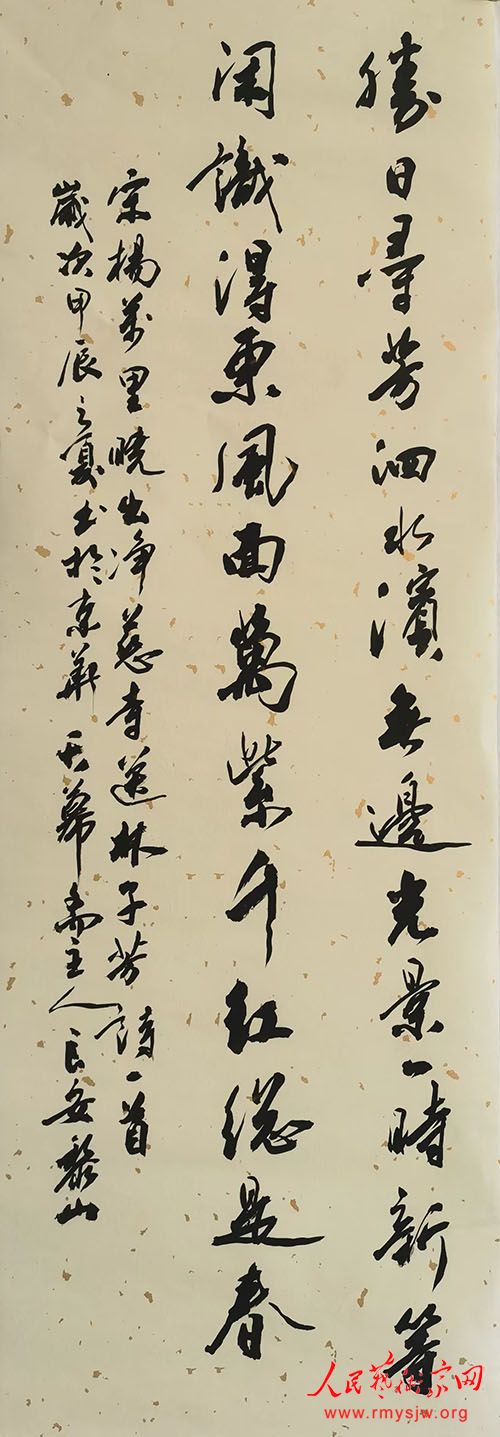 勝日尋芳泗水濱無邊光景一時新等
閑識得東風面萬紫千紅總是春
宋楊萬里曉出净慈寺送林子芳詩一首
歲次甲辰之夏書於京華天幕斋主人良安黎山
人民艺术家网
www.rmysjw.org